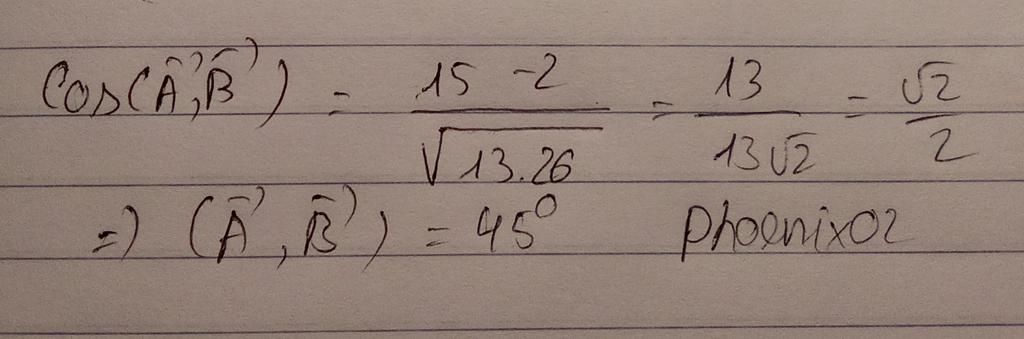 Cos(A⃗, B⃗) = (15 - 2)/√(13.26) = 13/(13√2) = √2/2
=> (A⃗, B⃗) = 45° phoenixoz